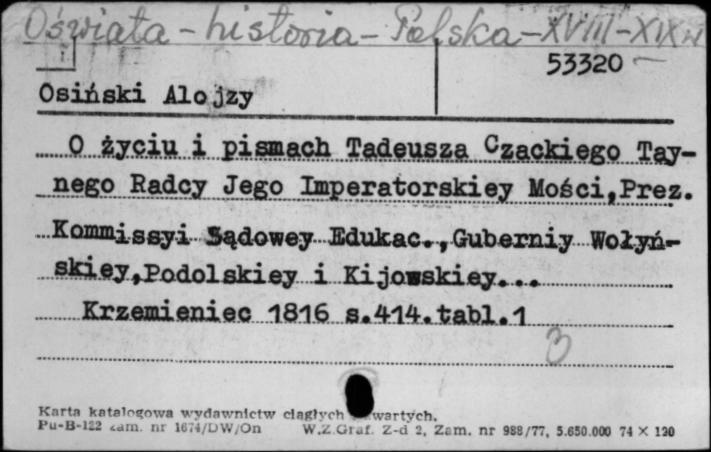 Oświata - historia - Polska - XVIII-XIX w
53320
Osiński Alojzy
O życiu i pismach Tadeusza Czackiego Tay-
nego Radcy Jego Imperatorskiey Mości,Prez.
Kommissyi Sądowey Edukac.,Guberniy Wołyń-
skiey,Podolskiey i Kijowskiey...
Krzemieniec 1816 s.414.tabl.1
3
Karta katalogowa wydawnictw ciągłych wartych.
Pu-B-122 zam. nr 1674/DW/On W.Z.Graf. Z-d 2, Zam. nr 988/77, 5.650.000 74 X 120